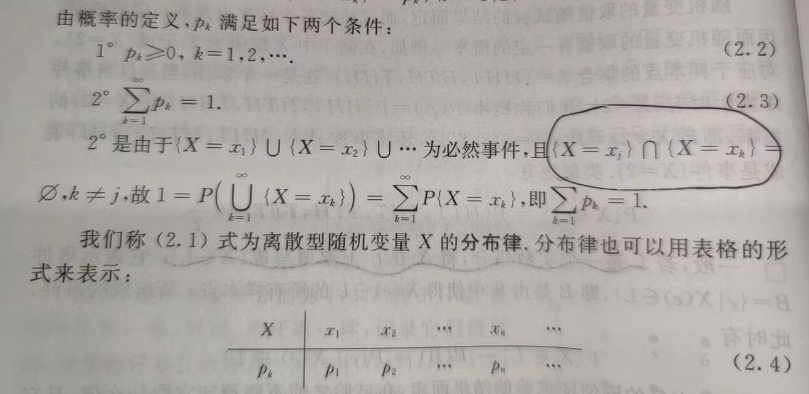 由概率的定义,pₖ 满足如下两个条件:
1° pₖ⩾0, k=1,2,⋯. (2.2)
2° ∑_{k=1}^{∞} pₖ = 1. (2.3)
2° 是由于{X = x₁} ∪ {X = x₂} ∪ ⋯ 为必然事件,且{X = xⱼ} ∩ {X = xₖ} =
∅,k ≠ j,故 1 = P(⋃_{k=1}^{∞} {X = xₖ}) = ∑_{k=1}^{∞} P{X = xₖ},即 ∑_{k=1}^{∞} pₖ = 1.
我们称 (2.1) 式为离散型随机变量 X 的分布律. 分布律也可以用表格的形
式来表示:
X x₁ x₂ ⋯ xₙ ⋯
pₖ p₁ p₂ ⋯ pₙ ⋯ (2.4)